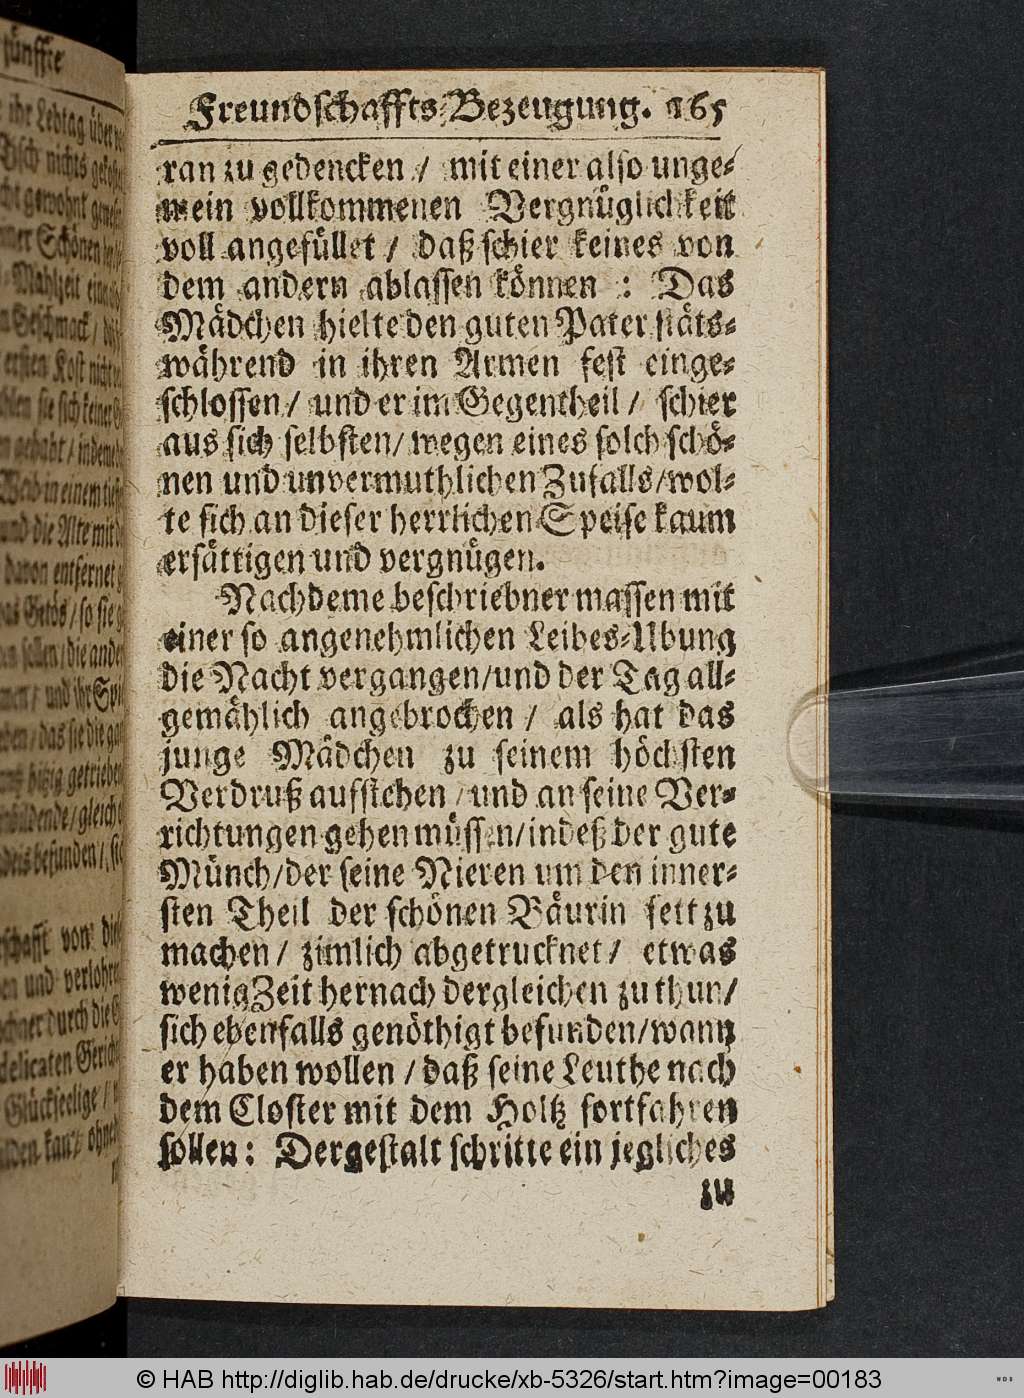 Freundschaffts-Bezeugung. 165
ran zu gedencken / mit einer also unge-
mein vollkommenen Vergnüglichkeit
voll angefüllet / daß schier keines von
dem andern ablassen können : Das
Mädchen hielte den guten Pater stäts-
während in ihren Armen fest einge-
schlossen / und er im Gegentheil / schier
aus sich selbsten / wegen eines solch schö-
nen und unvermuthlichen Zufalls / wol-
te sich an dieser herrlichen Speise kaum
ersättigen und vergnügen.
Nachdeme beschriebner massen mit
einer so angenehmlichen Leibes-Ubung
die Nacht vergangen / und der Tag all-
gemählich angebrochen / als hat das
junge Mädchen zu seinem höchsten
Verdruß aufstehen / und an seine Ver-
richtungen gehen müssen / indeß der gute
Münch / der seine Nieren um den inner-
sten Theil der schönen Bäurin fett zu
machen / zimlich abgetrucknet / etwas
wenig Zeit hernach dergleichen zu thun /
sich ebenfalls genöthigt befunden / wann
er haben wollen / daß seine Leuthe nach
dem Closter mit dem Holtz fortfahren
sollen : Dergestalt schritte ein jegliches
zu
© HAB http://diglib.hab.de/drucke/xb-5326/start.htm?image=00183